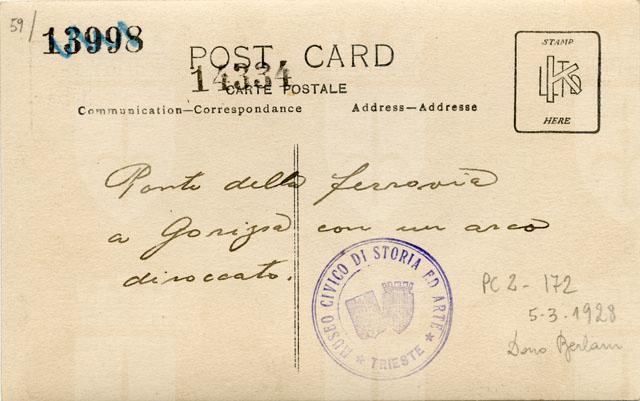 59/
13998
POST CARD
14334
CARTE POSTALE
Communication—Correspondance
Address—Addresse
STAMP
HERE
Ponte della ferrovia
a Gorizia con un arco
diroccato.
MUSEO CIVICO DI STORIA ED ARTE
★ TRIESTE ★
PC2-172
5-3-1928
Dono